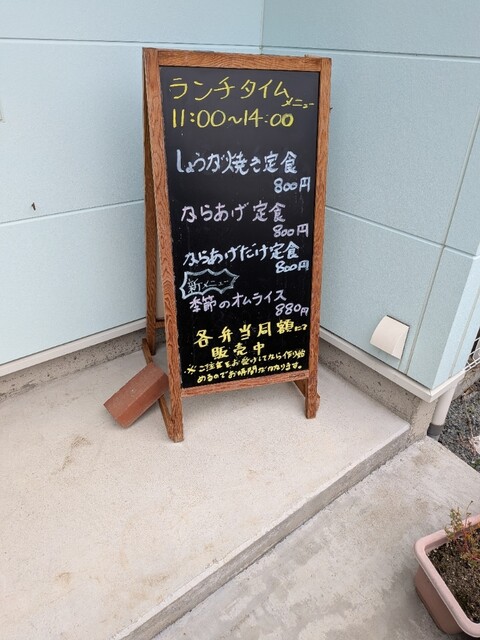 ランチタイム
メニュー
11:00～14:00
しょうが焼き定食
800円
ならあげ定食
800円
ならあげだけ定食
800円
新メニュー
季節のオムライス
880円
各弁当同額にて
販売中
※ご注文をお受けしてから作り始
めるのでお時間がかかります。